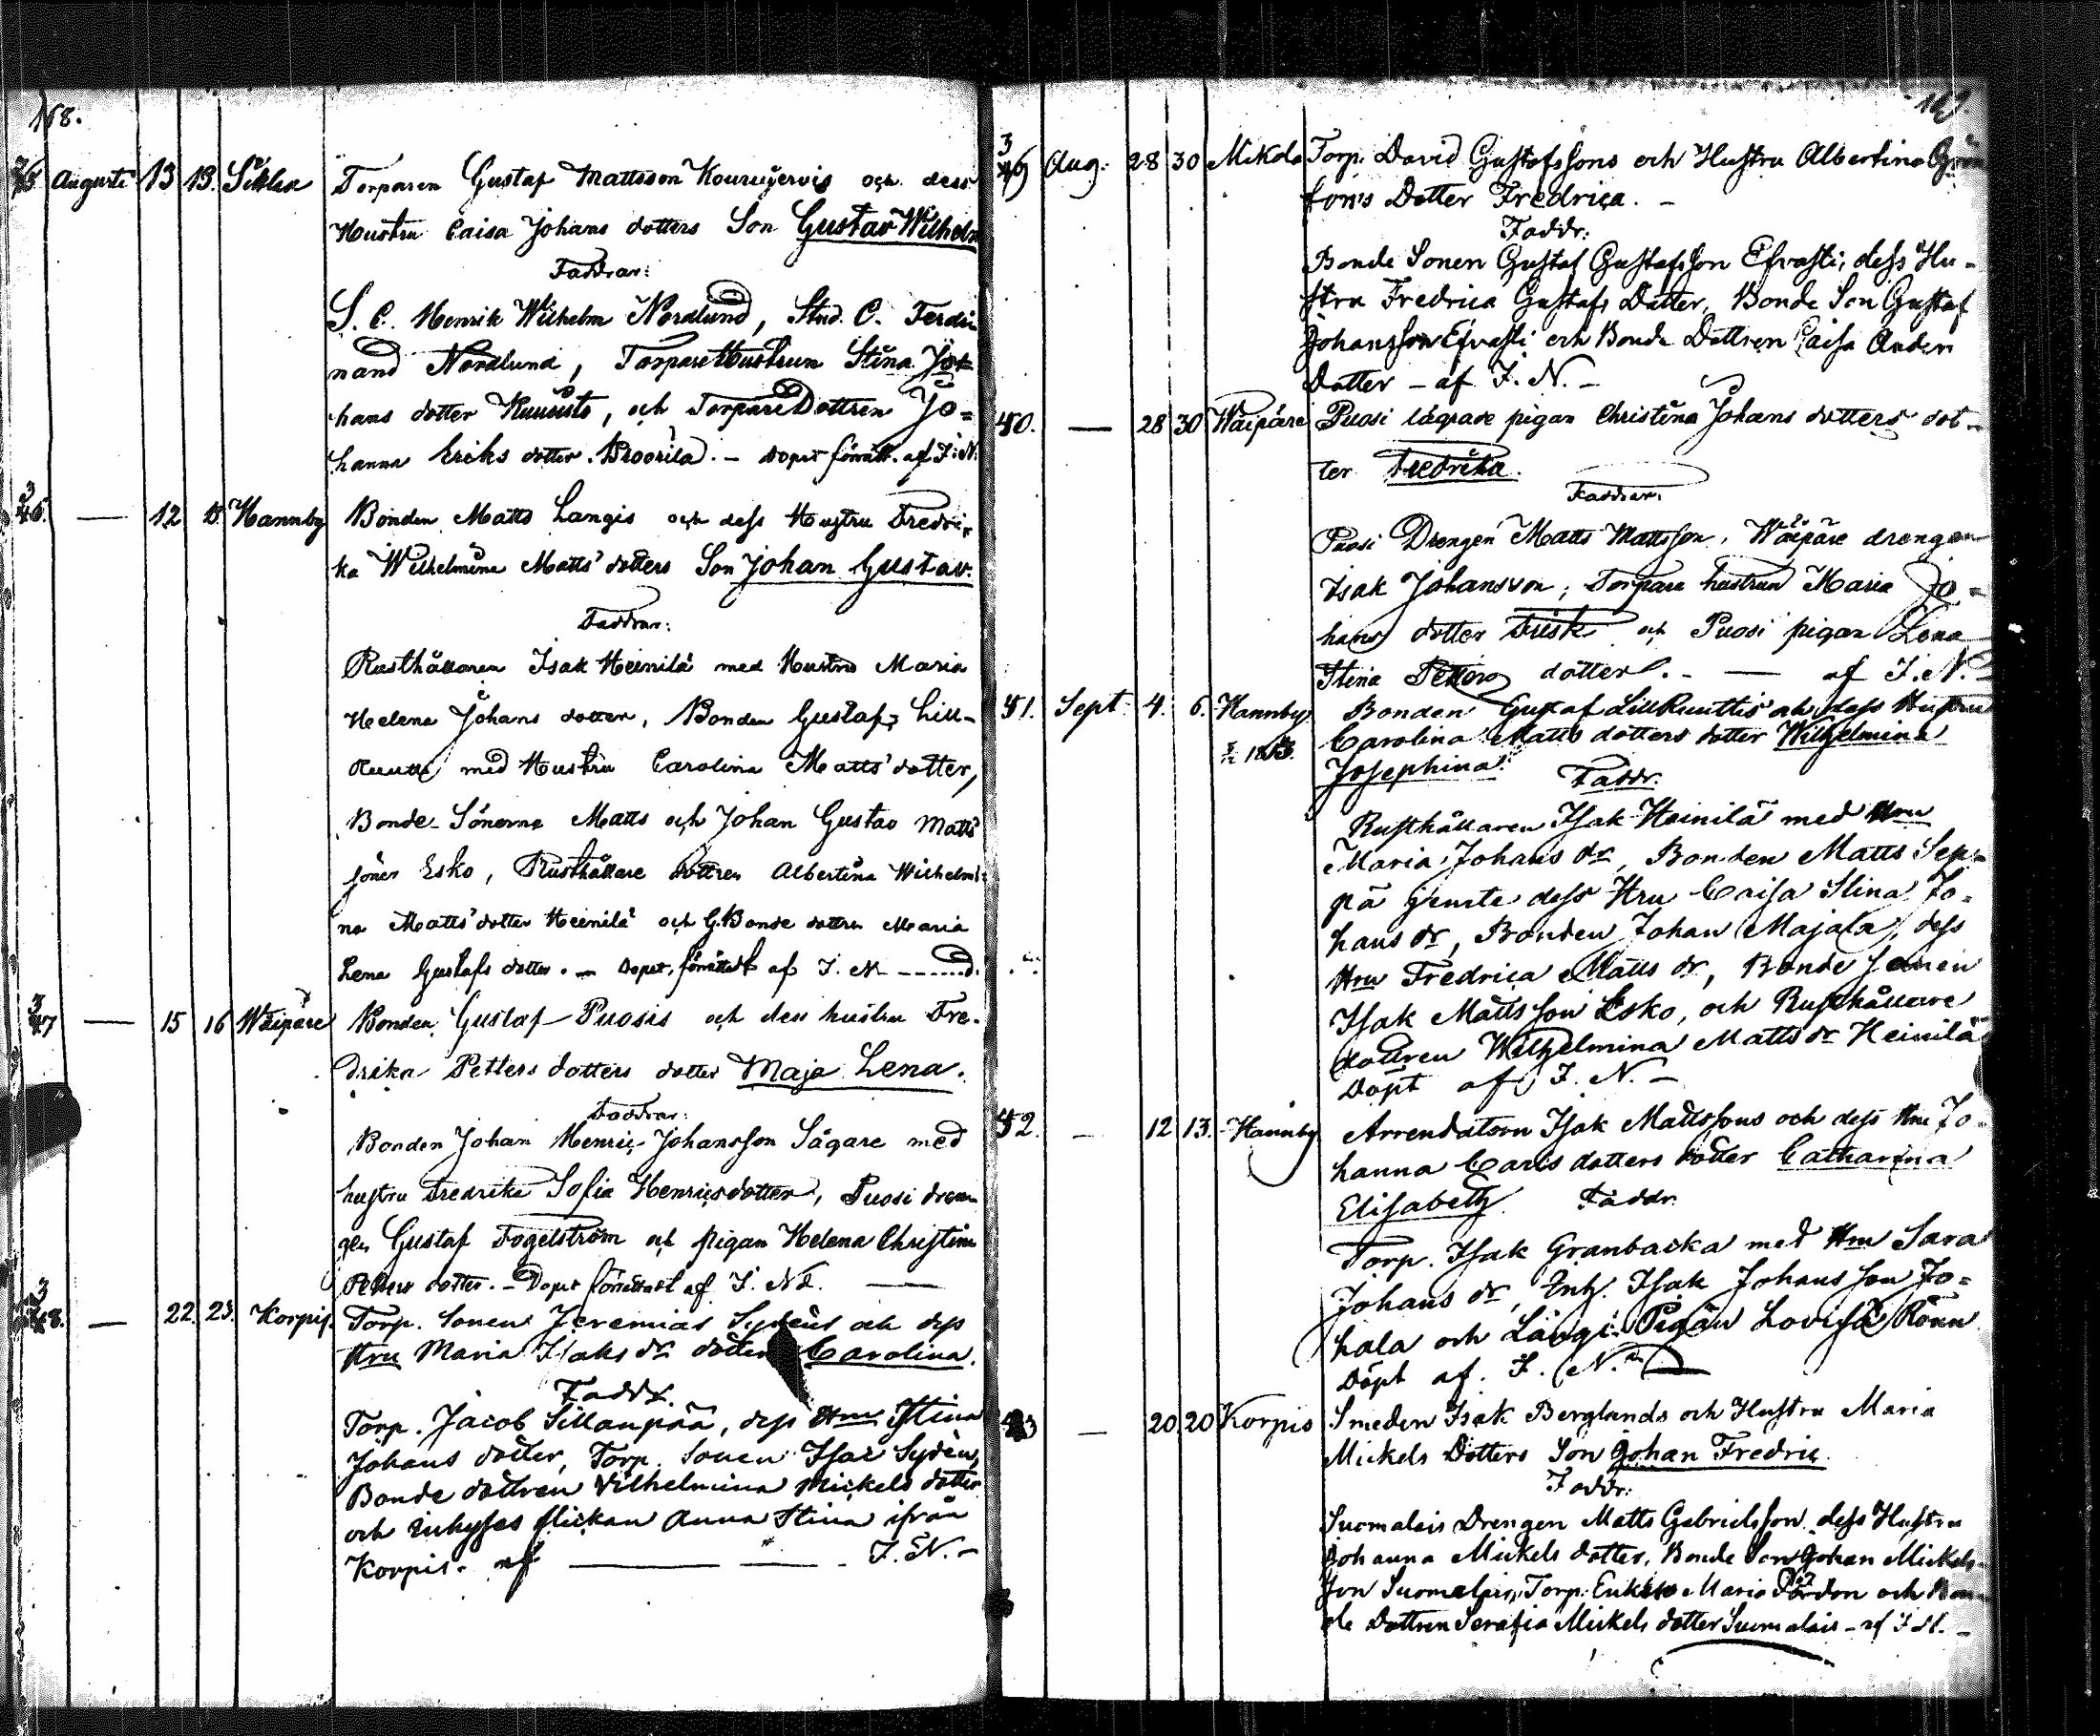 168.
Augusti 13 13. Sikilä Torparen Gustaf Mattsson Kourujervis och dess
Hustru Caisa Johans dotters Son Gustav Wilhelm
Faddrar:
S. C. Henrik Wilhelm Nordlund, Stud. C. Ferdi-
nand Nordlund, TorpareHustrun Stina Jo-
hans dotter Kuusisto, och TorpareDottren Jo-
hanna Eriks dotter. – Dopet förrätt. af I. N.
46. — 12 Hannby Bonden Matts Langis och dess Hustru Fredri-
ka Wilhelmina Matts dotters Son Johan Gustav.
Faddrar:
Rusthållaren Isak Heinilä med Hustru Maria
Helena Johans dotter, Bonden Gustaf Lill-
Ruutti med Hustru Carolina Matts dotter,
Bonde-Sönerna Matts och Johan Gustav Matts
söner Esko, Rusthållare dottren Albertina Wilhelmi-
na Matts dotter Heinilä och G. Bonde dottren Maria
Lena Gustafs dotter. – Dopet förrättadt af I. N.
47 — 15 16 Waipäre Bonden Gustaf Puosis och dess hustru Fre-
drika Petters dotters dotter Maja Lena.
Faddrar:
Bonden Johan Henric Johansson Sågare med
hustru Fredrika Sofia Henricsdotter, Puosi dren-
gen Gustaf Fogelström och pigan Helena Christina
Petters dotter. – Dopet förrättadt af I. Nd. —
48. — 22 23. Korpis. Torp. Sonen Jeremias Sydéns och dess
Hru Maria Isaks dr dotter Carolina.
Faddr.
Torp. Jacob Sillanpää, dess Hru Stina
Johans dotter, Torp. Sonen Isac Sydén,
Bonde dottren Vilhelmina Mickels dotter
och Inhyses flickan Anna Stina ifrån
Korpis. af — — I. N. –
49 Aug: 28 30 Mikola Torp. David Gustafssons och Hustru Albertina Grön
fors Dotter Fredrica. –
Faddr:
Bonde Sonen Gustaf Gustafsson Efvasti, dess Hu-
stru Fredrica Gustafs Dotter, Bonde Son Gustaf
Johansson Efvasti och Bonde Dottren Caisa Anders
Dotter – af I. N. –
50. — 28 30 Waipäre Puosi lägrade pigan Christina Johans dotters dot-
ter Fredrika.
Faddrar:
Puosi Drengen Matts Mattsson, Waipäre drengen
Isak Johansson, Torpare hustrun Maria Jo-
hans dotter Frisk och Puosi pigan Lena
Stina Petters dotter. – — af I. N.
51. Sept. 4. 6. Hannby Bonden Gustaf LillRuuttis och dess Hustru
Carolina Matts dotters dotter Wilhelmina
Josephina. Faddr.
Rusthållaren Isak Heinilä med Hru
Maria Johans dr, Bonden Matts Sep-
pä jemte dess Hru Caisa Stina Jo-
hans dr, Bonden Johan Majala, dess
Hru Fredrica Matts dr, Bonde Sonen
Isak Mattsson Esko, och Rusthållare
dottren Wilhelmina Matts dr Heinilä
Döpt af I. N. –
52. — 12 13. Hannby Arrendatorn Isak Mattssons och dess Hru Jo-
hanna Carls dotters dotter Catharina
Elisabeth. Faddr.
Torp. Isak Granbacka med Hru Sara
Johans dr, Enk. Isak Johansson Jo-
hala och Långi Pigan Lovisa Rönn
Döpt af I. N.
53 — 20 20 Korpis Smeden Isak Berglunds och Hustru Maria
Mickels Dotters Son Johan Fredric.
Faddr:
Suomalais Drengen Matts Gabrielsson, dess Hustru
Johanna Mickels dotter, Bonde Son Johan Mickels-
son Suomalais, Torp. Enkan Maria och Bon-
de Dottren Serafia Mickels dotter Suomalais – af I. N. –